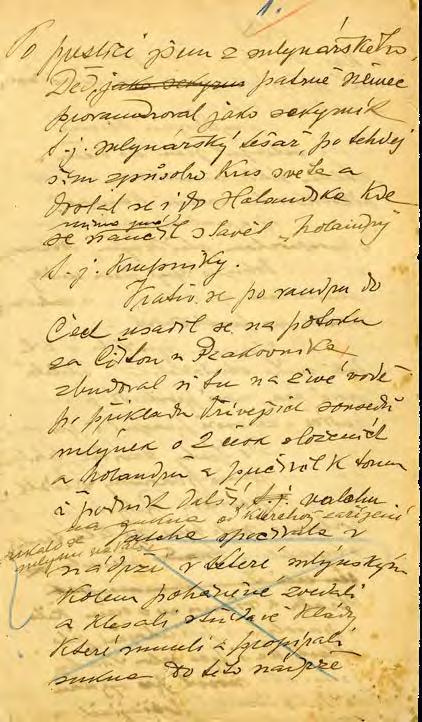 1.
Po pustině jsem z mlynářského,
Děd, jako sekyrník patrně němec
provandroval jako sekyrník
t.j. mlynářský tesař, po tehdej
ším způsobu kus světa a
dostal se i do Holandska kde
mimo jiné
se naučil stavěti „holandry"
t.j. krupníky.
Vrátiv se po vandru do
Čech usadil se na potoku
za Čistou u Rakovníka
zbudoval si tu na živé vodě
po příkladu dřívějších sousedů
mlýnek o 2 složeních
a holandru a počítal k tomu
i podnik další, t.j. valchu
na sukna od kteréhož zařízení
říkalo se
mlýnu na valše
valcha spočívala v
nádrži v které mlýnským
kolem poháněné zvedali
a klesali střídavě klády
které museli a propírali
sukna do této nádrže